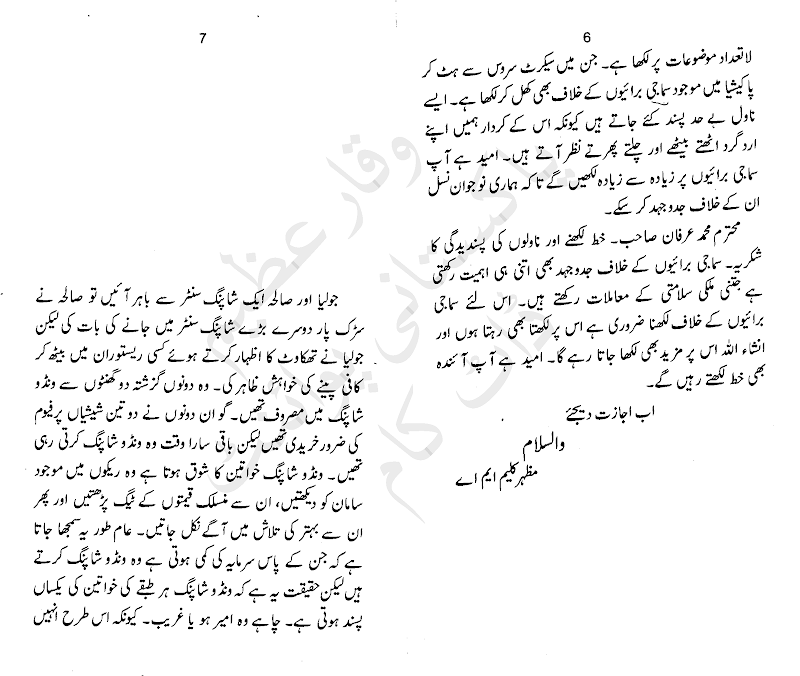 6
لاتعداد موضوعات پر لکھا ہے۔ جن میں سیکرٹ سروس سے ہٹ کر
پاکیشیا میں موجود سماجی برائیوں کے خلاف بھی کھل کر لکھا ہے۔ ایسے
ناول بے حد پسند کئے جاتے ہیں کیونکہ اس کے کردار ہمیں اپنے
ارد گرد اٹھتے بیٹھے اور چلتے پھرتے نظر آتے ہیں۔ امید ہے آپ
سماجی برائیوں پر زیادہ سے زیادہ لکھیں گے تاکہ ہماری نوجوان نسل
ان کے خلاف جدوجہد کر سکے۔
محترم محمد عرفان صاحب۔ خط لکھنے اور ناولوں کی پسندیدگی کا
شکریہ۔ سماجی برائیوں کے خلاف جدوجہد بھی اتنی ہی اہمیت رکھتی
ہے جتنی ملکی سلامتی کے معاملات رکھتے ہیں۔ اس لئے سماجی
برائیوں کے خلاف لکھنا ضروری ہے اس پر لکھتا بھی رہتا ہوں اور
انشاء اللہ اس پر مزید بھی لکھا جاتا رہے گا۔ امید ہے آپ آئندہ
بھی خط لکھتے رہیں گے۔
اب اجازت دیجئے
والسلام
مظہر کلیم ایم اے
7
جولیا اور صالحہ ایک شاپنگ سنٹر سے باہر آئیں تو صالحہ نے
سڑک پار دوسرے بڑے شاپنگ سنٹر میں جانے کی بات کی لیکن
جولیا نے تھکاوٹ کا اظہار کرتے ہوئے کسی ریستوران میں بیٹھ کر
کافی پینے کی خواہش ظاہر کی۔ وہ دونوں گزشتہ دو گھنٹوں سے ونڈو
شاپنگ میں مصروف تھیں۔ گو ان دونوں نے دو تین شیشیاں پرفیوم
کی ضرور خریدی تھیں لیکن باقی سارا وقت وہ ونڈو شاپنگ کرتی رہی
تھیں۔ ونڈو شاپنگ خواتین کا شوق ہوتا ہے وہ ریکوں میں موجود
سامان کو دیکھتیں، ان سے منسلک قیمتوں کے ٹیگ پڑھتیں اور پھر
ان سے بہتر کی تلاش میں آگے نکل جاتیں۔ عام طور یہ سمجھا جاتا
ہے کہ جن کے پاس سرمایہ کی کمی ہوتی ہے وہ ونڈو شاپنگ کرتے
ہیں لیکن حقیقت یہ ہے کہ ونڈو شاپنگ ہر طبقے کی خواتین کی یکساں
پسند ہوتی ہے۔ چاہے وہ امیر ہو یا غریب۔ کیونکہ اس طرح انہیں
وقار عظیم
پاکستانی پوائنٹ
ڈاٹ کام